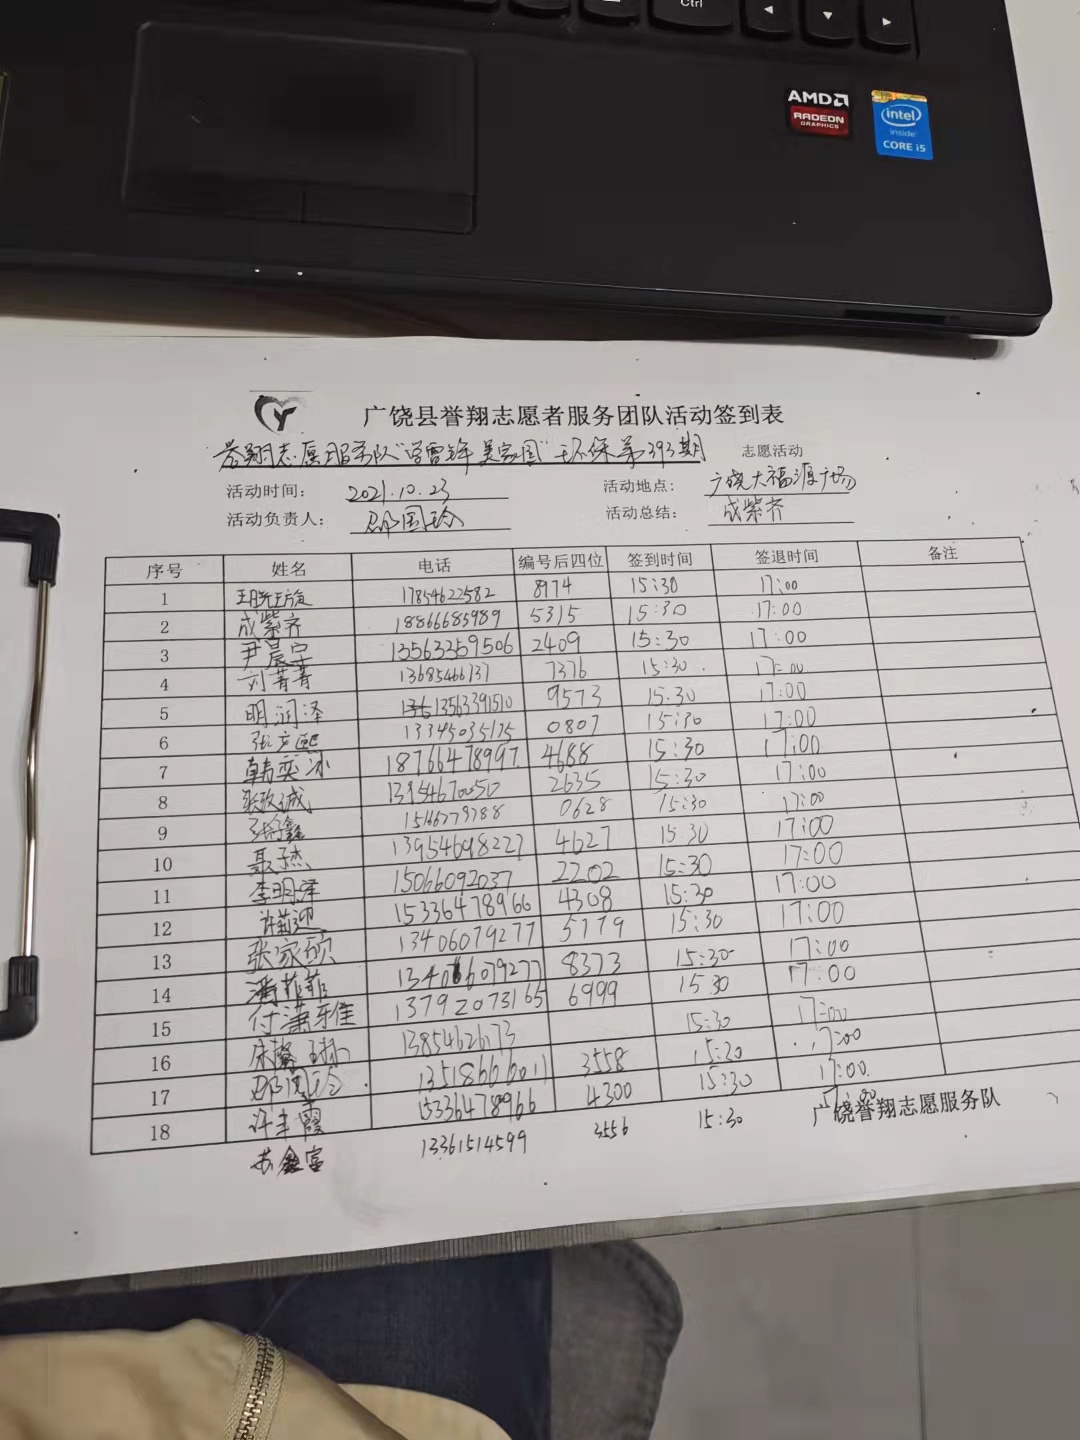 Ctrl
AMD
RADEON
GRAPHICS
intel
inside
CORE i5
广饶县誉翔志愿者服务团队活动签到表
誉翔志愿服务队"学雷锋 美家园"环保第393期 志愿活动
活动时间: 2021.10.23 活动地点: 广饶大福源广场
活动负责人: 活动总结: 成紫齐
序号 姓名 电话 编号后四位 签到时间 签退时间 备注
1 17854622582 8974 15:30 17:00
2 成紫齐 18866685989 5315 15:30 17:00
3 尹晨宇 13563359506 2409 15:30 17:00
4 刘菁菁 13685466137 7376 15:30 17:00
5 明润泽 13563391510 9573 15:30 17:00
6 13345035175 0807 15:30 17:00
7 韩奕冰 18766478997 4688 15:30 17:00
8 张致诚 13954670050 2635 15:30 17:00
9 0628 15:30 17:00
10 聂子杰 13954698227 4627 15:30 17:00
11 李明泽 15066092037 2202 15:30 17:00
12 15336478966 4308 15:30 17:00
13 张家硕 13406079277 5179 15:30 17:00
14 潘菲菲 13406079277 8373 15:30 17:00
15 付潇卓佳 13792073165 6999 15:30 17:00
16 13854626173 15:30 17:00
17 13518666011 3558 15:30 17:00
18 许丰霞 15336478966 4300 15:30 17:00
苏鑫富 13361514599 3556 15:30
广饶誉翔志愿服务队